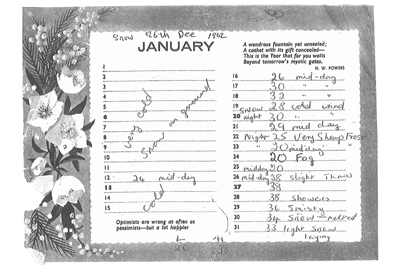 Snow 26th Dec 1962
JANUARY
A wondrous fountain yet unsealed;
A casket with its gift concealed—
This is the Year that for you waits
Beyond tomorrow's mystic gates.
H. W. POWERS
1
2
3
4
5
6
7
8
9
10
11
12 24 mid-day
13
14
15
very cold
Snow on ground
cold
Optimists are wrong as often as
pessimists—but a lot happier
16 26 mid-day
17 30 "
18 32 "
19 Snow 28 cold wind
20 night 30 " "
21 29 mid day
22 Night 25 Very Sharp Frost
23 " 20 midday
24 20 Fog
25 midday 20
26 mid-day 38 slight Thaw
27 38
28 38 Showers
29 36
30 34 Snow melted
31 33 light Snow
laying